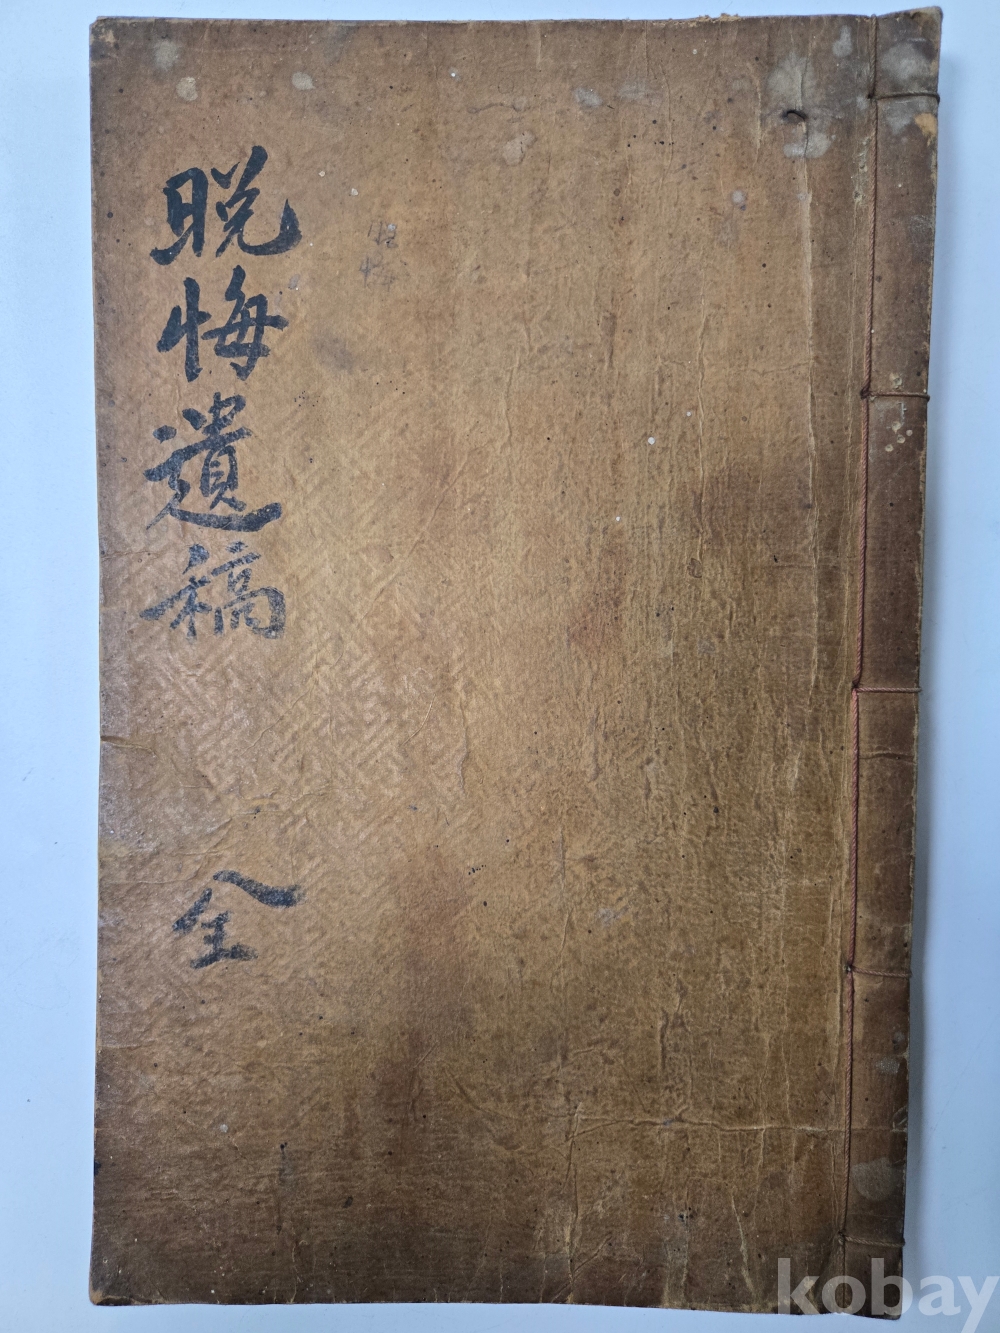 晩悔遺稿 全
kobay